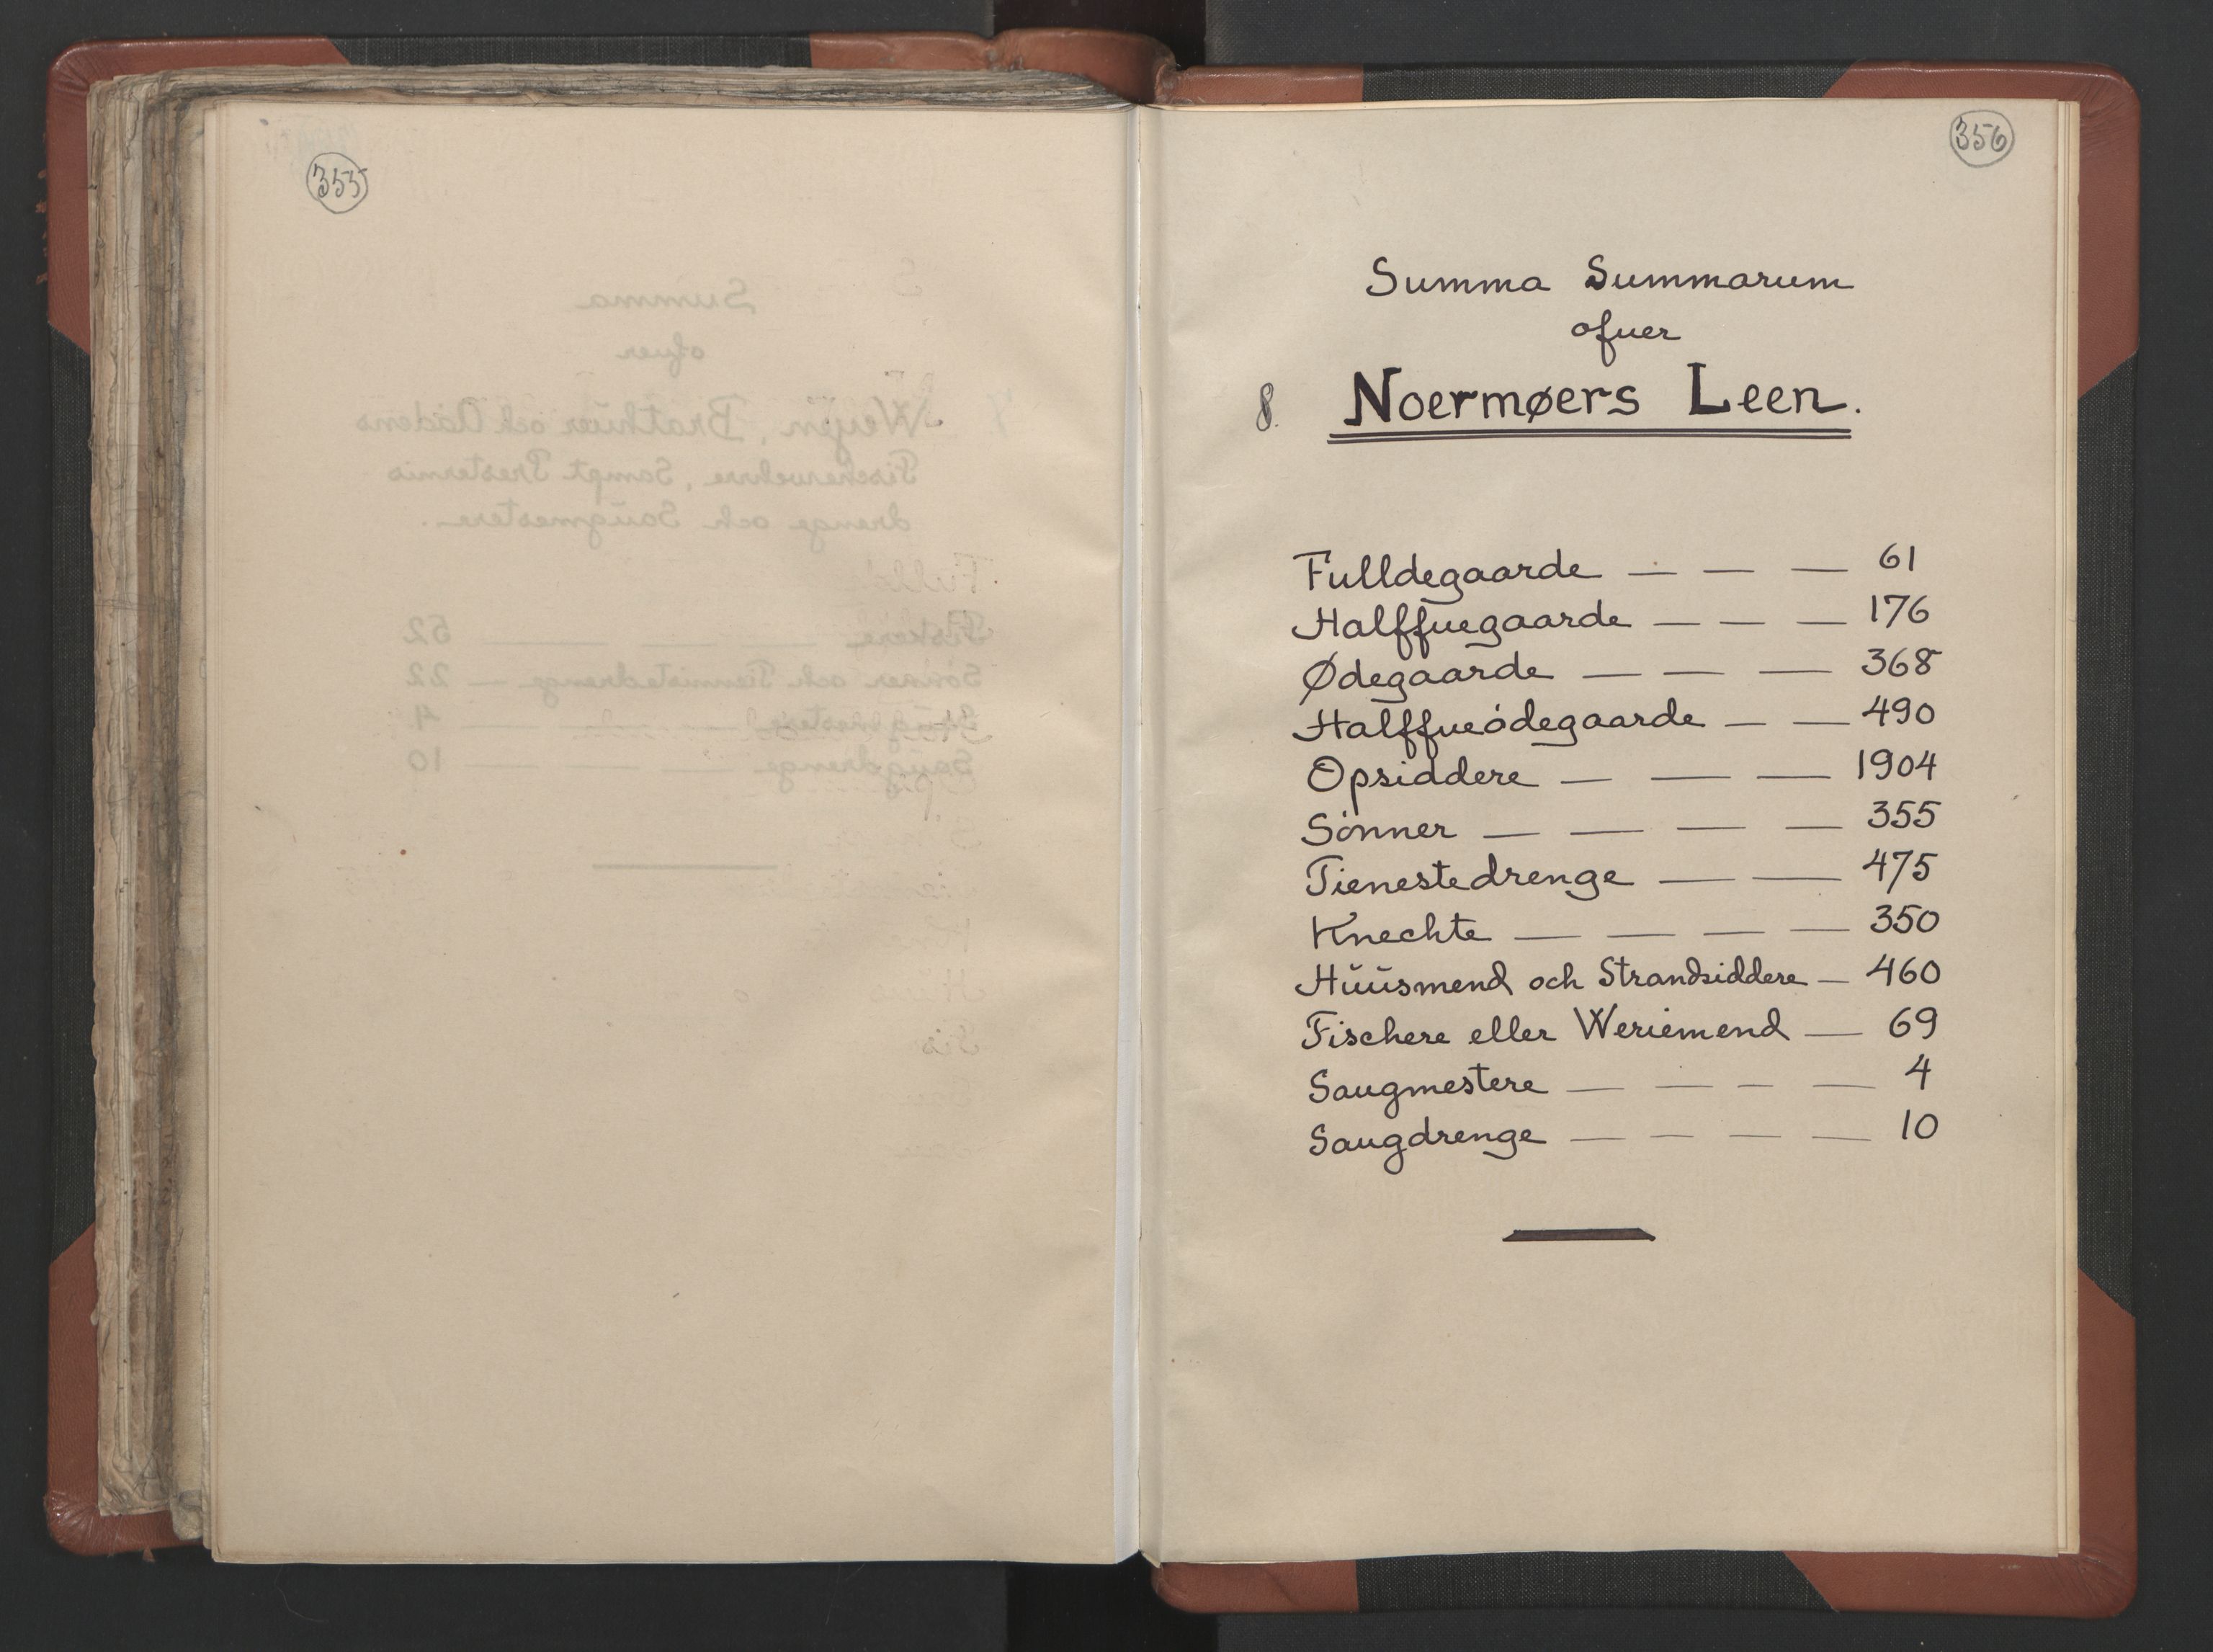 355
356
Summa Summarum
ofuer
8. Noermøers Leen.
Fulldegaarde — — — 61
Halffuegaarde — — — 176
Ødegaarde — — — 368
Halffueódegaarde — — 490
Opsiddere — — — 1904
Sónner — — — — 355
Tienestedrenge — — 475
Knechte — — — — 350
Húúsmend och Strandsiddere — 460
Fischere eller Weriemend — 69
Saugmestere — — — — 4
Saugdrenge — — — — 10